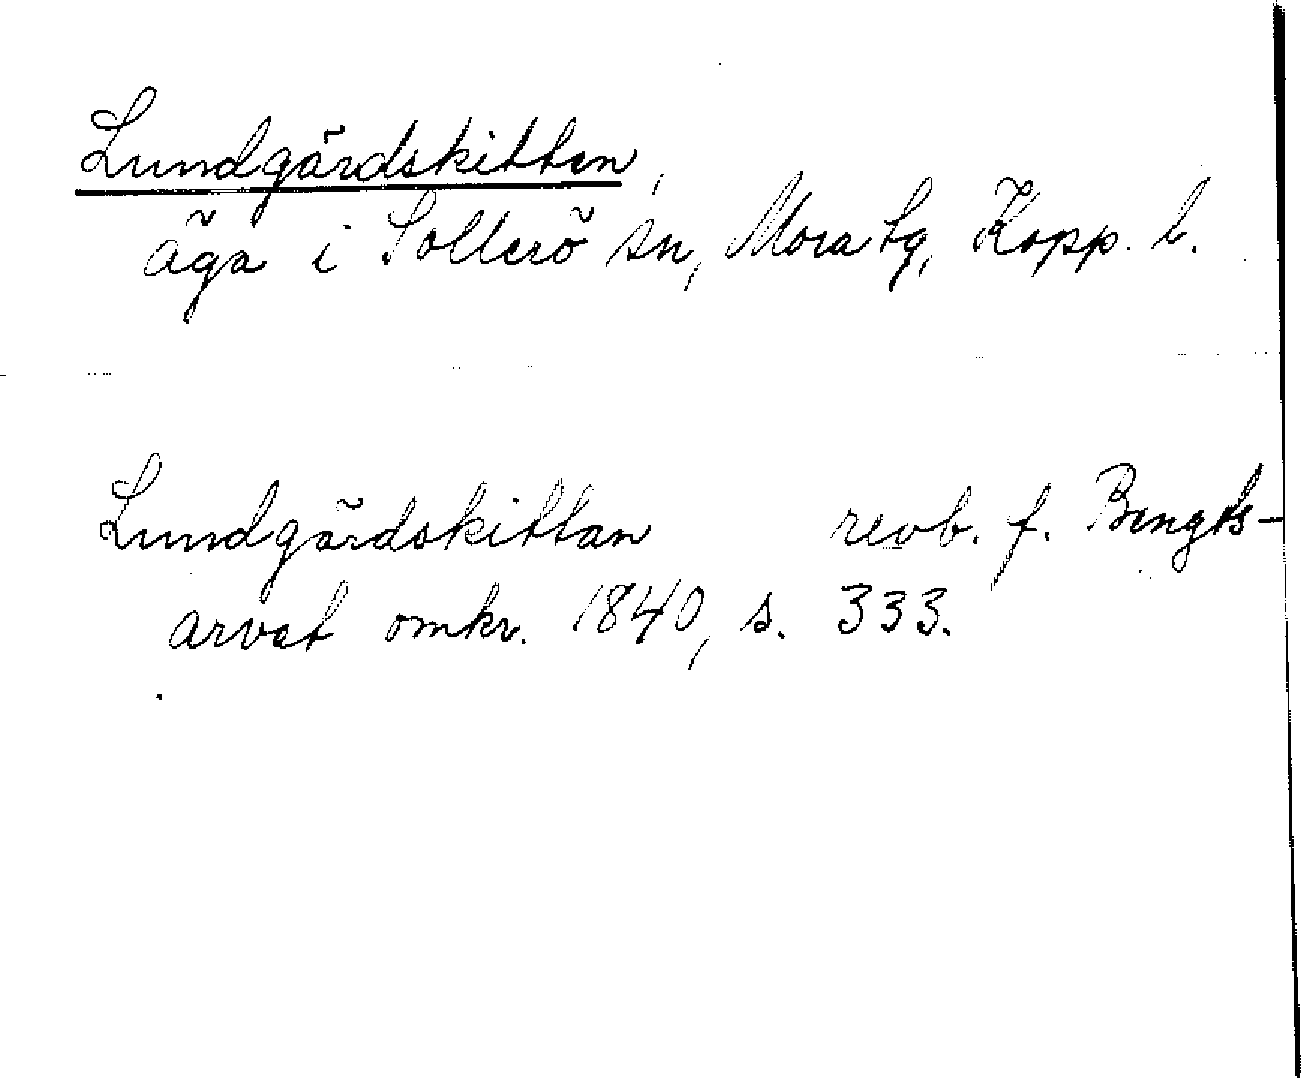 Lundgärdskittan,
äga i Sollerö sn, Mora tg, Kopp. l.
Lundgärdskittan revb. f. Bengts-
arvet omkr. 1840, s. 333.